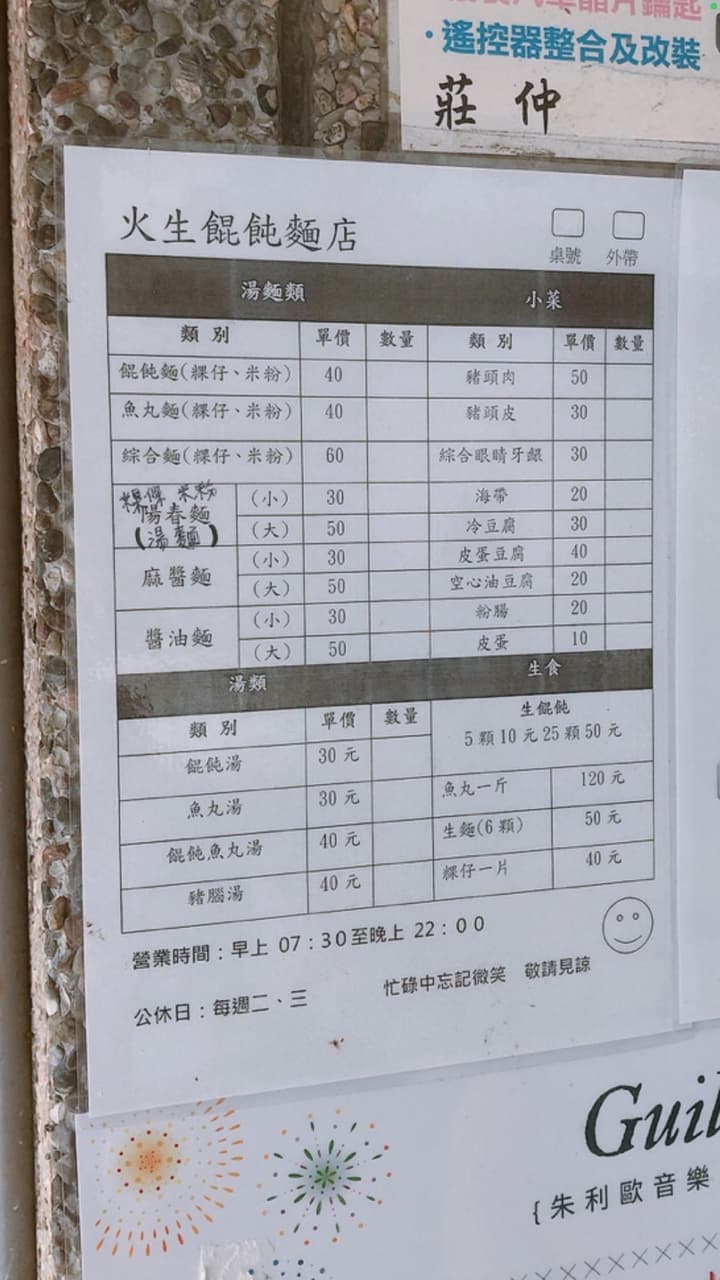 ·遙控器整合及改裝
莊 仲
火生餛飩麵店
桌號 外帶
湯麵類 小菜
類別 單價 數量 類別 單價 數量
餛飩麵(粿仔、米粉) 40 豬頭肉 50
魚丸麵(粿仔、米粉) 40 豬頭皮 30
綜合麵(粿仔、米粉) 60 綜合眼睛牙齦 30
米粉
陽春麵 (小) 30 海帶 20
(湯麵) (大) 50 冷豆腐 30
麻醬麵 (小) 30 皮蛋豆腐 40
(大) 50 空心油豆腐 20
醬油麵 (小) 30 粉腸 20
(大) 50 皮蛋 10
湯類 生食
類別 單價 數量 生餛飩
5顆10元25顆50元
餛飩湯 30元
魚丸湯 30元 魚丸一斤 120元
餛飩魚丸湯 40元 生麵(6顆) 50元
豬腦湯 40元 粿仔一片 40元
營業時間：早上 07：30至晚上 22：00
忙碌中忘記微笑 敬請見諒
公休日：每週二、三
Guil
{朱利歐音樂